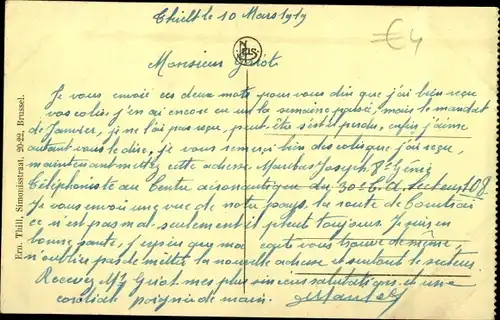 Thielt le 10 Mars 1919
€4
NELS
Monsieur Griot
Je vous envoie ces deux mots pour vous dire que j'ai bien reçu
vos colis, j'en ai encore eu un la semaine passée, mais le mandat
de Janvier, je ne l'ai pas reçu, peut-être s'est il perdu, enfin j'aime
autant vous le dire, je vous remercie bien des colis que j'ai reçu,
maintenant mettez cette adresse Joseph 8e Génie
Téléphoniste au Centre aéronautique du 30e C.A. secteur 108
Je vous envoie une vue de notre pays, la route de Courtrai
ce n'est pas mal, seulement il pleut toujours. Je suis en
bonne santé, j'espère que ma carte vous trouve de même,
n'oubliez pas de mettre la nouvelle adresse et surtout le secteur.
Recevez Mr Griot mes plus sincères salutations et une
cordiale poignée de main.
Ern. Thill, Simonisstraat, 20-22, Brussel.